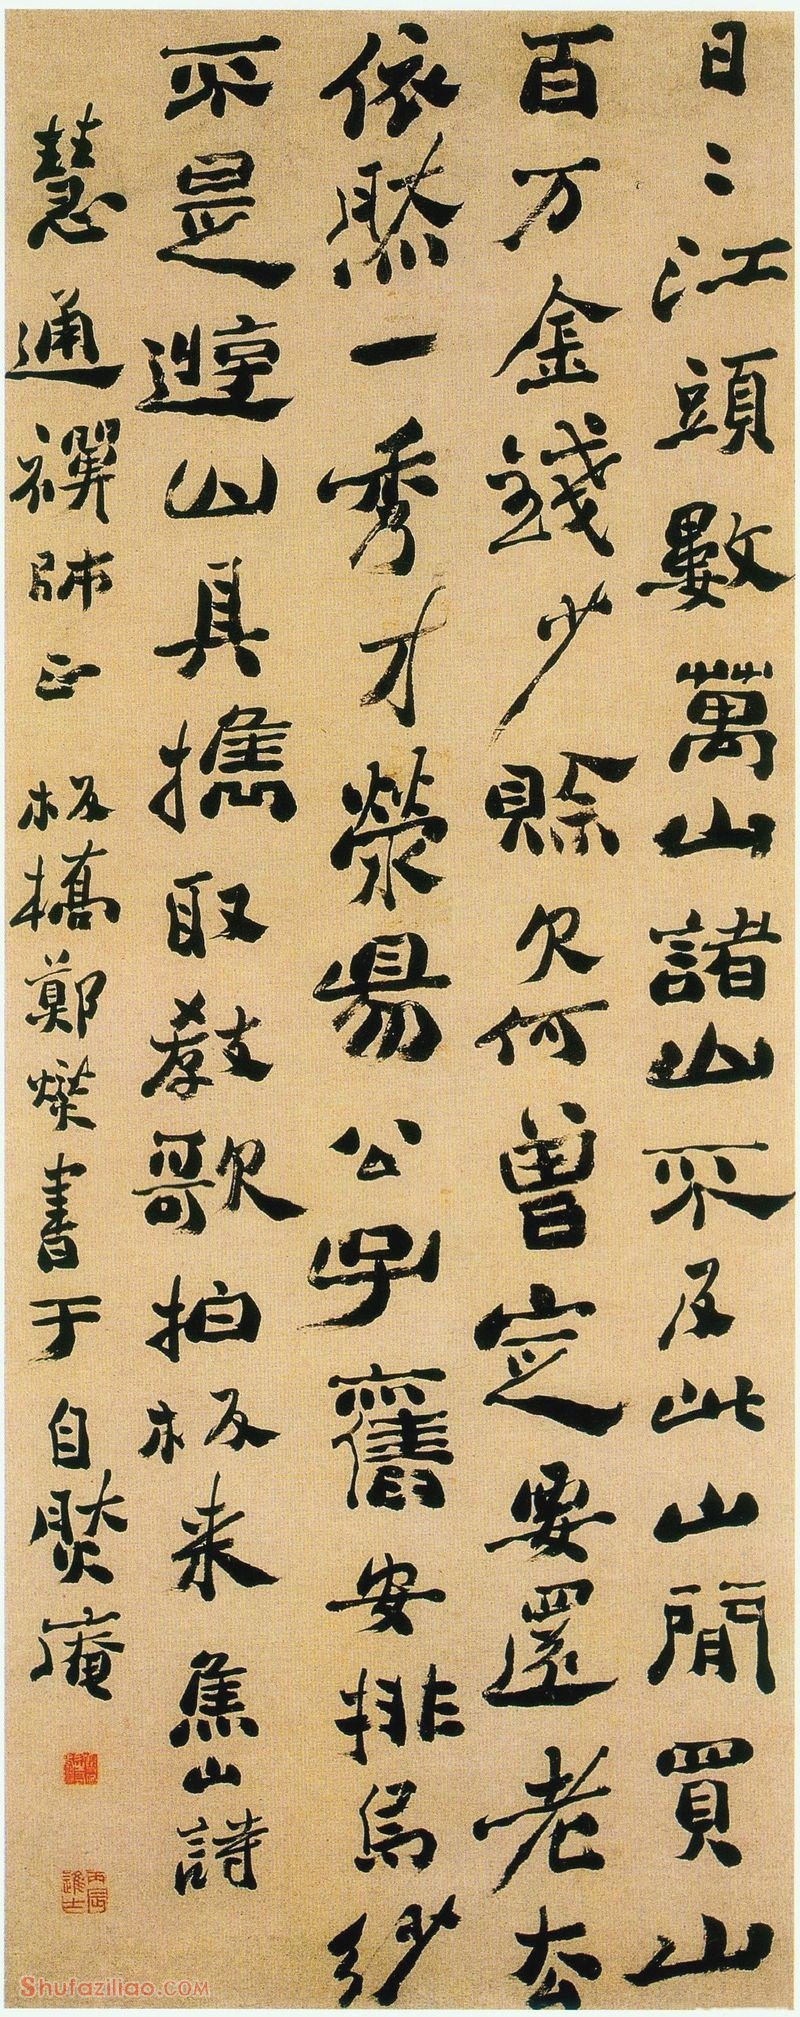 日〻江頭數萬山諸山不及此山閒買山
百万金錢少賒欠何曾定要還老去
依然一秀才滎陽公子舊安排烏紗
不是遊山具攜取教歌拍板来 焦山詩
慧通禪師正 板橋鄭燮書于自然庵
丙辰進士
Shufaziliao.COM